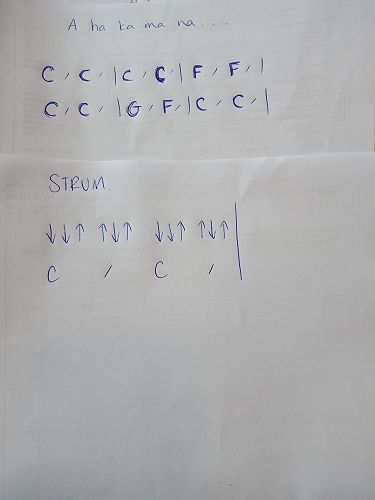 A ha ka ma na...
C / C / | C / C / | F / F / |
C / C / | G / F / | C / C / |
STRUM.
↓↓↑ ↑↓↑ ↓↓↑ ↑↓↑ |
C / C / |